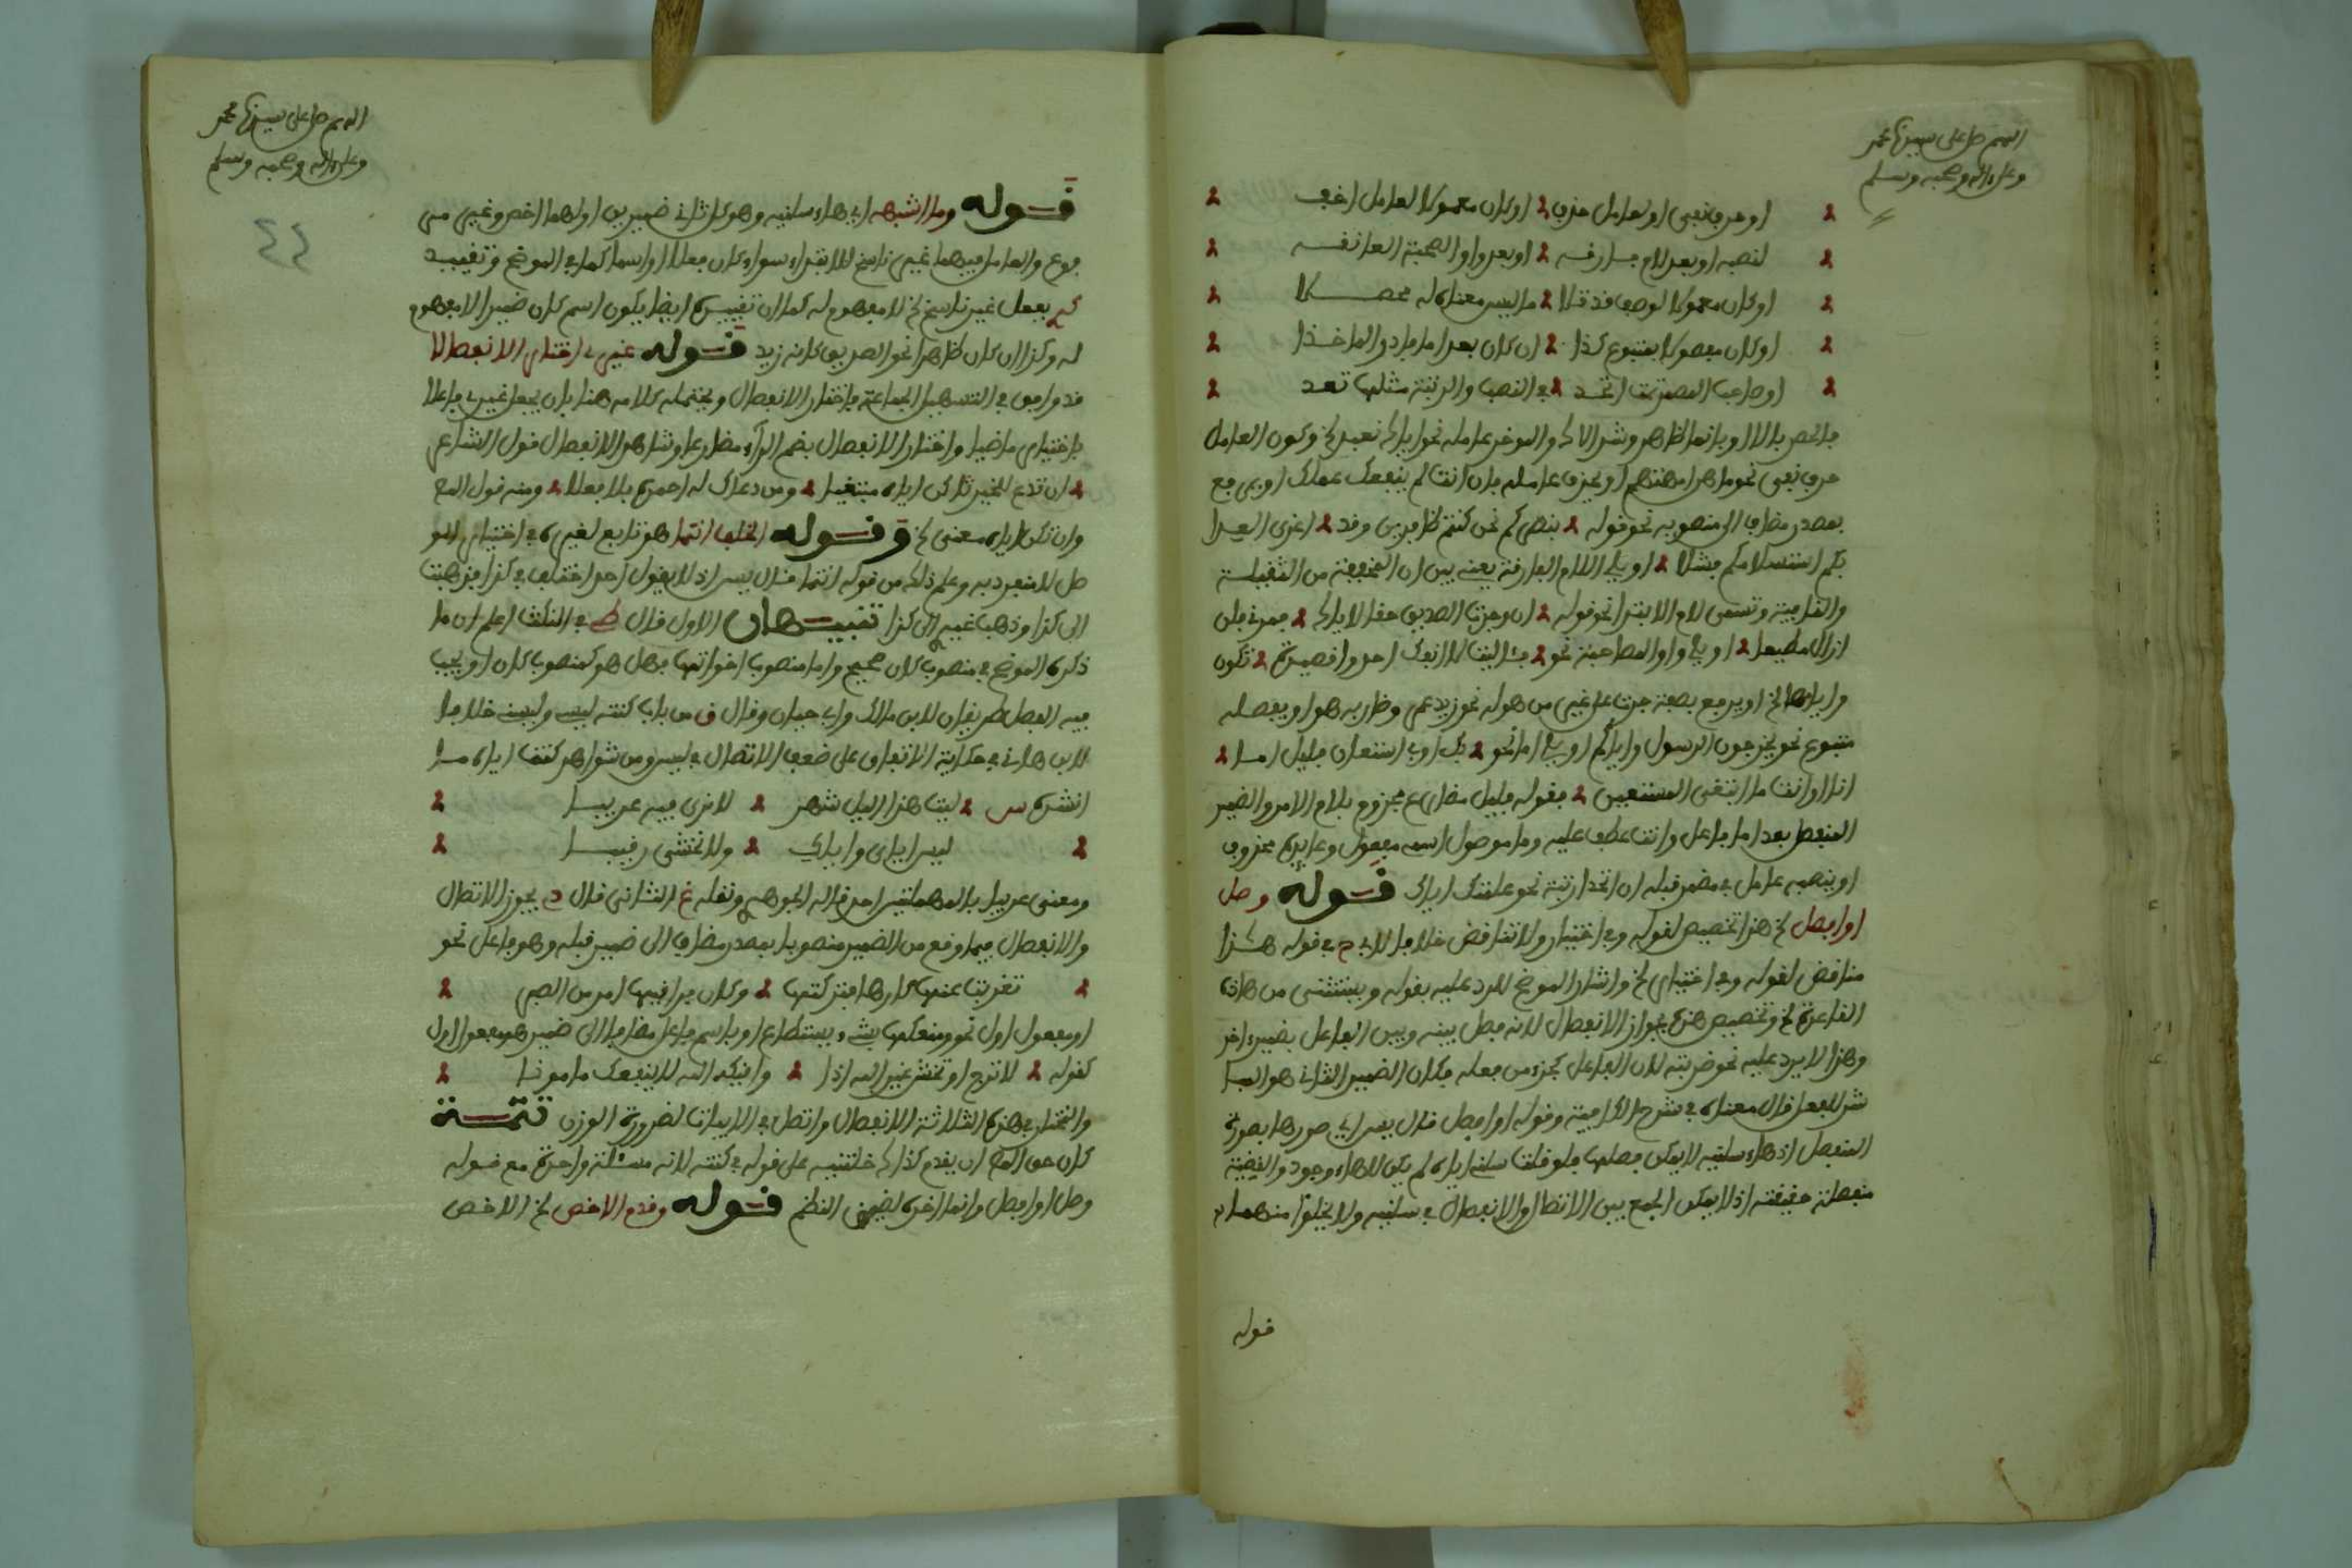 اللهم صل على سيدنا محمد
وعلى ءاله وصحبه وسلم
او حرف نفي او لعامل حذف او كان معمولا لعامل اضف
لنصبه او بعد لام فارقه او بعد واو الصحبة العا نفسه
او كان معمولا لوصف قد تلا ما ليس معناه له محصلا
او كان مفصولا بمتبوع كذا ان كان بعد اما فادر الماخذا
او صاحب المضمر اتحد في النصب والرتبة مثلها تعد
فالحصر بالا او بانما الظاهر وشر الاك والموخر عامله نحو اياك نعبد الخ وكون العامل
حرف نفي نحو ما هن امهتهم او يحذف عامله فان انت لم ينفعك علمك او يرفع
بمصدر مضاف الى منصوبه نحو قوله بنصركم نحن كنتم ظافرين وقد اغرى العدا
بكم استسلامكم فشلا او يلي اللام الفارقة يعني بين ان المخففة من الثقيلة
والنافية وتسمى لام الابتدا نحو قوله ان وجدت الصديق حقا لاياك فمرني فلن
ازال مطيعا او يلي واو المصاحبة نحو فئاليت لا انفك احدو قصيدة تكون
واياها الخ او يرفع بصفة جرت على غير من هو له نحو زيد عمرو ضاربه هو او يفصله
متبوع نحو يخرجون الرسول واياكم او يلي اما نحو بك او بي استعان فليل اما
انا او انت ما ابتغى المستعين فقوله فليل مضارع مجزوم بلام الامر والضمير
المنفصل بعد اما فاعل وانت عطف عليه وما موصول اسمي مفعول وعايده محذوف
او ينصبه عامل في مضمر قبله ان اتحد رتبة نحو علمتك اياك قوله وصل
او افصل الخ هذا تخصيص لقوله وفي اختيار ولا تناقض خلافا لابي ح في قوله هذا
مناقض لقوله وفي اختيار الخ واشار الموضح للرد عليه بقوله ويستثنى من هاذه
القاعدة الخ وتخصيص هذه بجواز الانفصال لانه فصل بينه وبين الفاعل بضمير اخر
وهذا لا يرد عليه نحو ضربته لان الفاعل كجزء من فعله فكان الضمير الثاني هو المبا
شر للفعل قال معناه في شرح الكافية وقوله او افصل قال يس اي صورها بصورة
المنفصل اذ هاء سلنيه لا يمكن فصلها فلو قلت سلني اياه لم يكن للهاء وجود والقضية
منفصلة حقيقة اذ لا يمكن الجمع بين الاتصال والانفصال في سلنيه ولا يخلوا منهما
قوله
اللهم صل على سيدنا محمد
وعلى ءاله وصحبه وسلم
٤٤
قوله وما اشبهه اي هاء سلنيه وهو كل ثاني ضميرين اولهما اخص وغير مر
فوع والعامل فيهما غير ناسخ للابتداء سواء كان فعلا او اسما كما في الموضح وتقييد
بفعل غير ناسخ الخ لا مفهوم له كما ان تقييده ايضا بكون اسم كان ضميرا لا مفهوم
له وكذا ان كان ظاهرا نحو الصديق كانه زيد قوله غيري اختار الانفصالا
قد وافق في التسهيل الجماعة فاختار الانفصال ويحتمله كلامه هنا بان يجعل غيري فاعلا
باختار ماضيا واختار الانفصال بضم الراء مضارعا وشاهد الانفصال قول الشاعر
ان تدع للخير تلاكن اياه مبتغيا ومن دعاك له احمده بما فعلا ومنه قول المع
وان تكن اياه معنى الخ وقوله الخلف انتما هو تابع لغيره في اختيار الو
صل لا منفرد به وعلم ذلك من قوله انتما قال يس اذ لا يقول احد اختلف في كذا فذهبت
الى كذا وذهب غيري الى كذا تنبيهان الاول قال في النكت اعلم ان ما
ذكره الموضح في منصوب كان صحيح واما منصوب اخواتها فهل هو كمنصوب كان او يجب
فيه الفصل طريقان لابن مالك وابي حيان وقال ق من باب كنته ليسه وليسني خلافا
لابن هاني في حكاية الاتفاق على ضعف الاتصال في ليس ومن شواهد كنت اياه ما
انشده س ليت هذا الليل شهر لا نرى فيه عريبا
ليس اياي واياك ولا نخشى رقيبا
ومعنى عريبا بالمهملة احد قاله الجوهري ونقله غ الثاني قال د يجوز الاتصال
والانفصال فيما وقع من الضمير منصوبا بمصدر مضاف الى ضمير قبله وهو فاعل نحو
تعزيت عنها كارها فتركتها وكان فراقيها امر من الصبر
او مفعول اول نحو ومنعكها بشيء يستطاع او باسم فاعل مضاف الى ضمير هو مفعول اول
كقوله لا ترج او تخش غير الله اذا واقيكه الله لا ينفك مامونا
والمختار في هذه الثلاثة الانفصال واتصل في الابيات لضرورة الوزن تتمة
كان حق الناظم ان يقدم كذاك خلتنيه على قوله في كنته لانه مسئلة واحدة مع قوله
وصل او افصل وانما اخره لضيق النظم قوله وقدم الاخص الخ الاخص